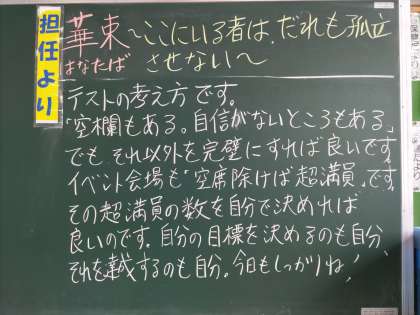 担任より
華束～ここにいる者は、だれも孤立
はなたば させない～
テストの考え方です。
「空欄もある。自信がないところもある」
でもそれ以外を完璧にすれば良いです。
イベント会場も"空席除けば超満員"です。
その超満員の数を自分で決めれば
良いのです。自分の目標を決めるのも自分
それを達成するのも自分。今日もしっかりね!